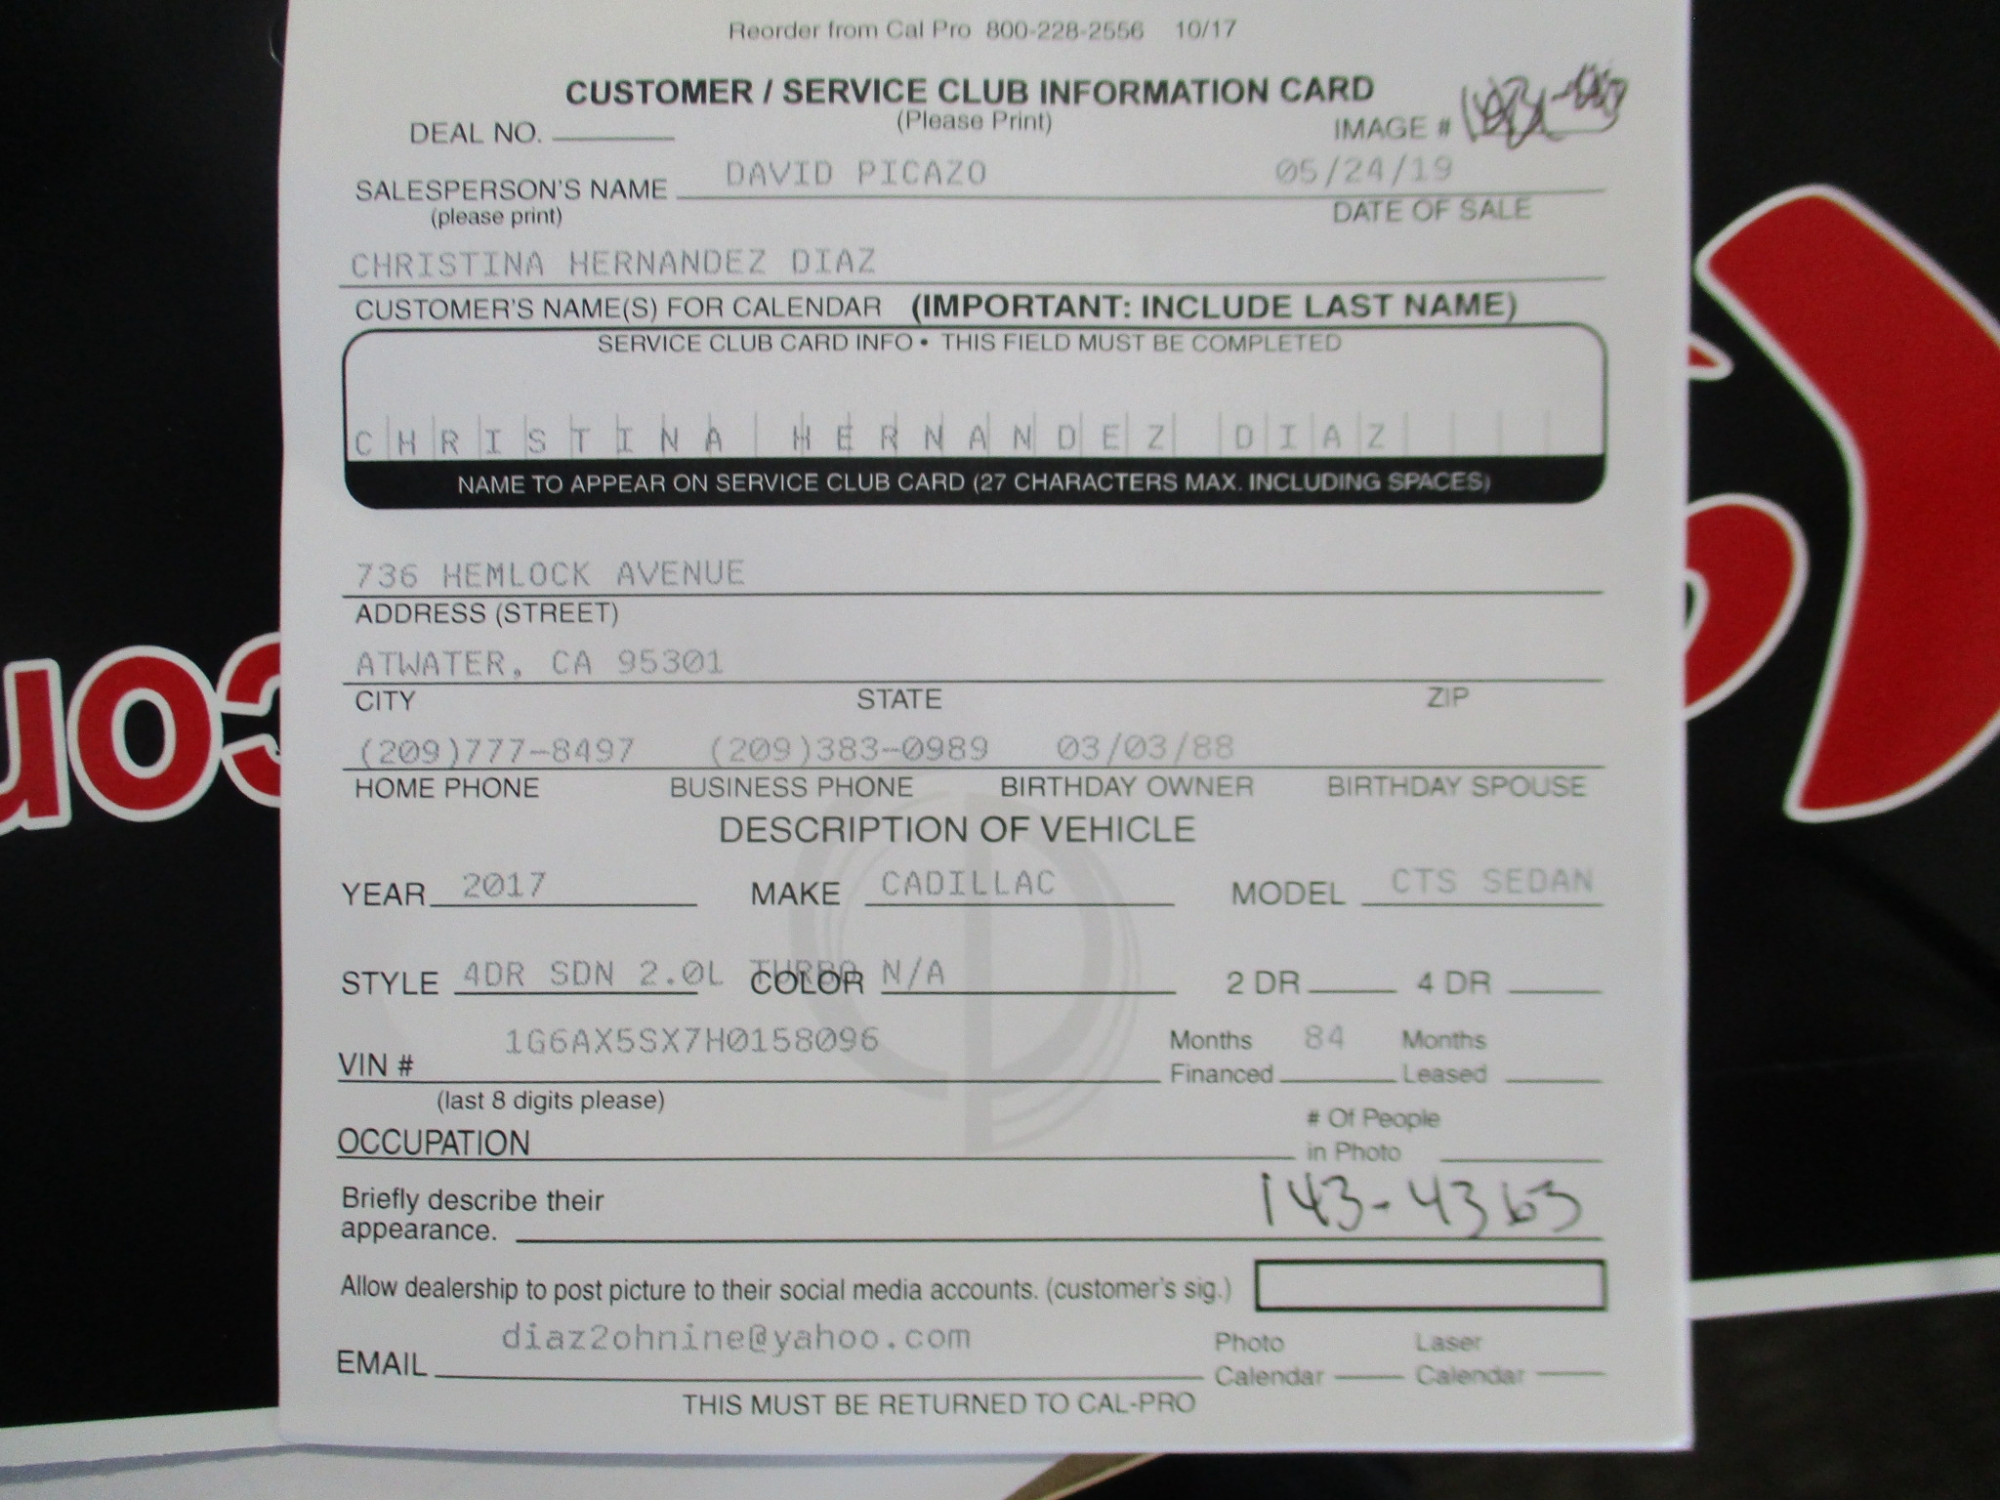 Reorder from Cal Pro 800-228-2556 10/17
CUSTOMER / SERVICE CLUB INFORMATION CARD
(Please Print)
DEAL NO. IMAGE #
SALESPERSON'S NAME DAVID PICAZO 05/24/19
(please print) DATE OF SALE
CHRISTINA HERNANDEZ DIAZ
CUSTOMER'S NAME(S) FOR CALENDAR (IMPORTANT: INCLUDE LAST NAME)
SERVICE CLUB CARD INFO • THIS FIELD MUST BE COMPLETED
CHRISTINA HERNANDEZ DIAZ
NAME TO APPEAR ON SERVICE CLUB CARD (27 CHARACTERS MAX. INCLUDING SPACES)
736 HEMLOCK AVENUE
ADDRESS (STREET)
ATWATER, CA 95301
CITY STATE ZIP
(209)777-8497 (209)383-0989 03/03/88
HOME PHONE BUSINESS PHONE BIRTHDAY OWNER BIRTHDAY SPOUSE
DESCRIPTION OF VEHICLE
YEAR 2017 MAKE CADILLAC MODEL CTS SEDAN
STYLE 4DR SDN 2.0L TURBO COLOR N/A 2 DR 4 DR
VIN # 1G6AX5SX7H0158096 Months Financed 84 Months Leased
(last 8 digits please)
OCCUPATION # Of People in Photo
Briefly describe their
appearance. 143-4363
Allow dealership to post picture to their social media accounts. (customer's sig.)
EMAIL diaz2ohnine@yahoo.com Photo Calendar Laser Calendar
THIS MUST BE RETURNED TO CAL-PRO